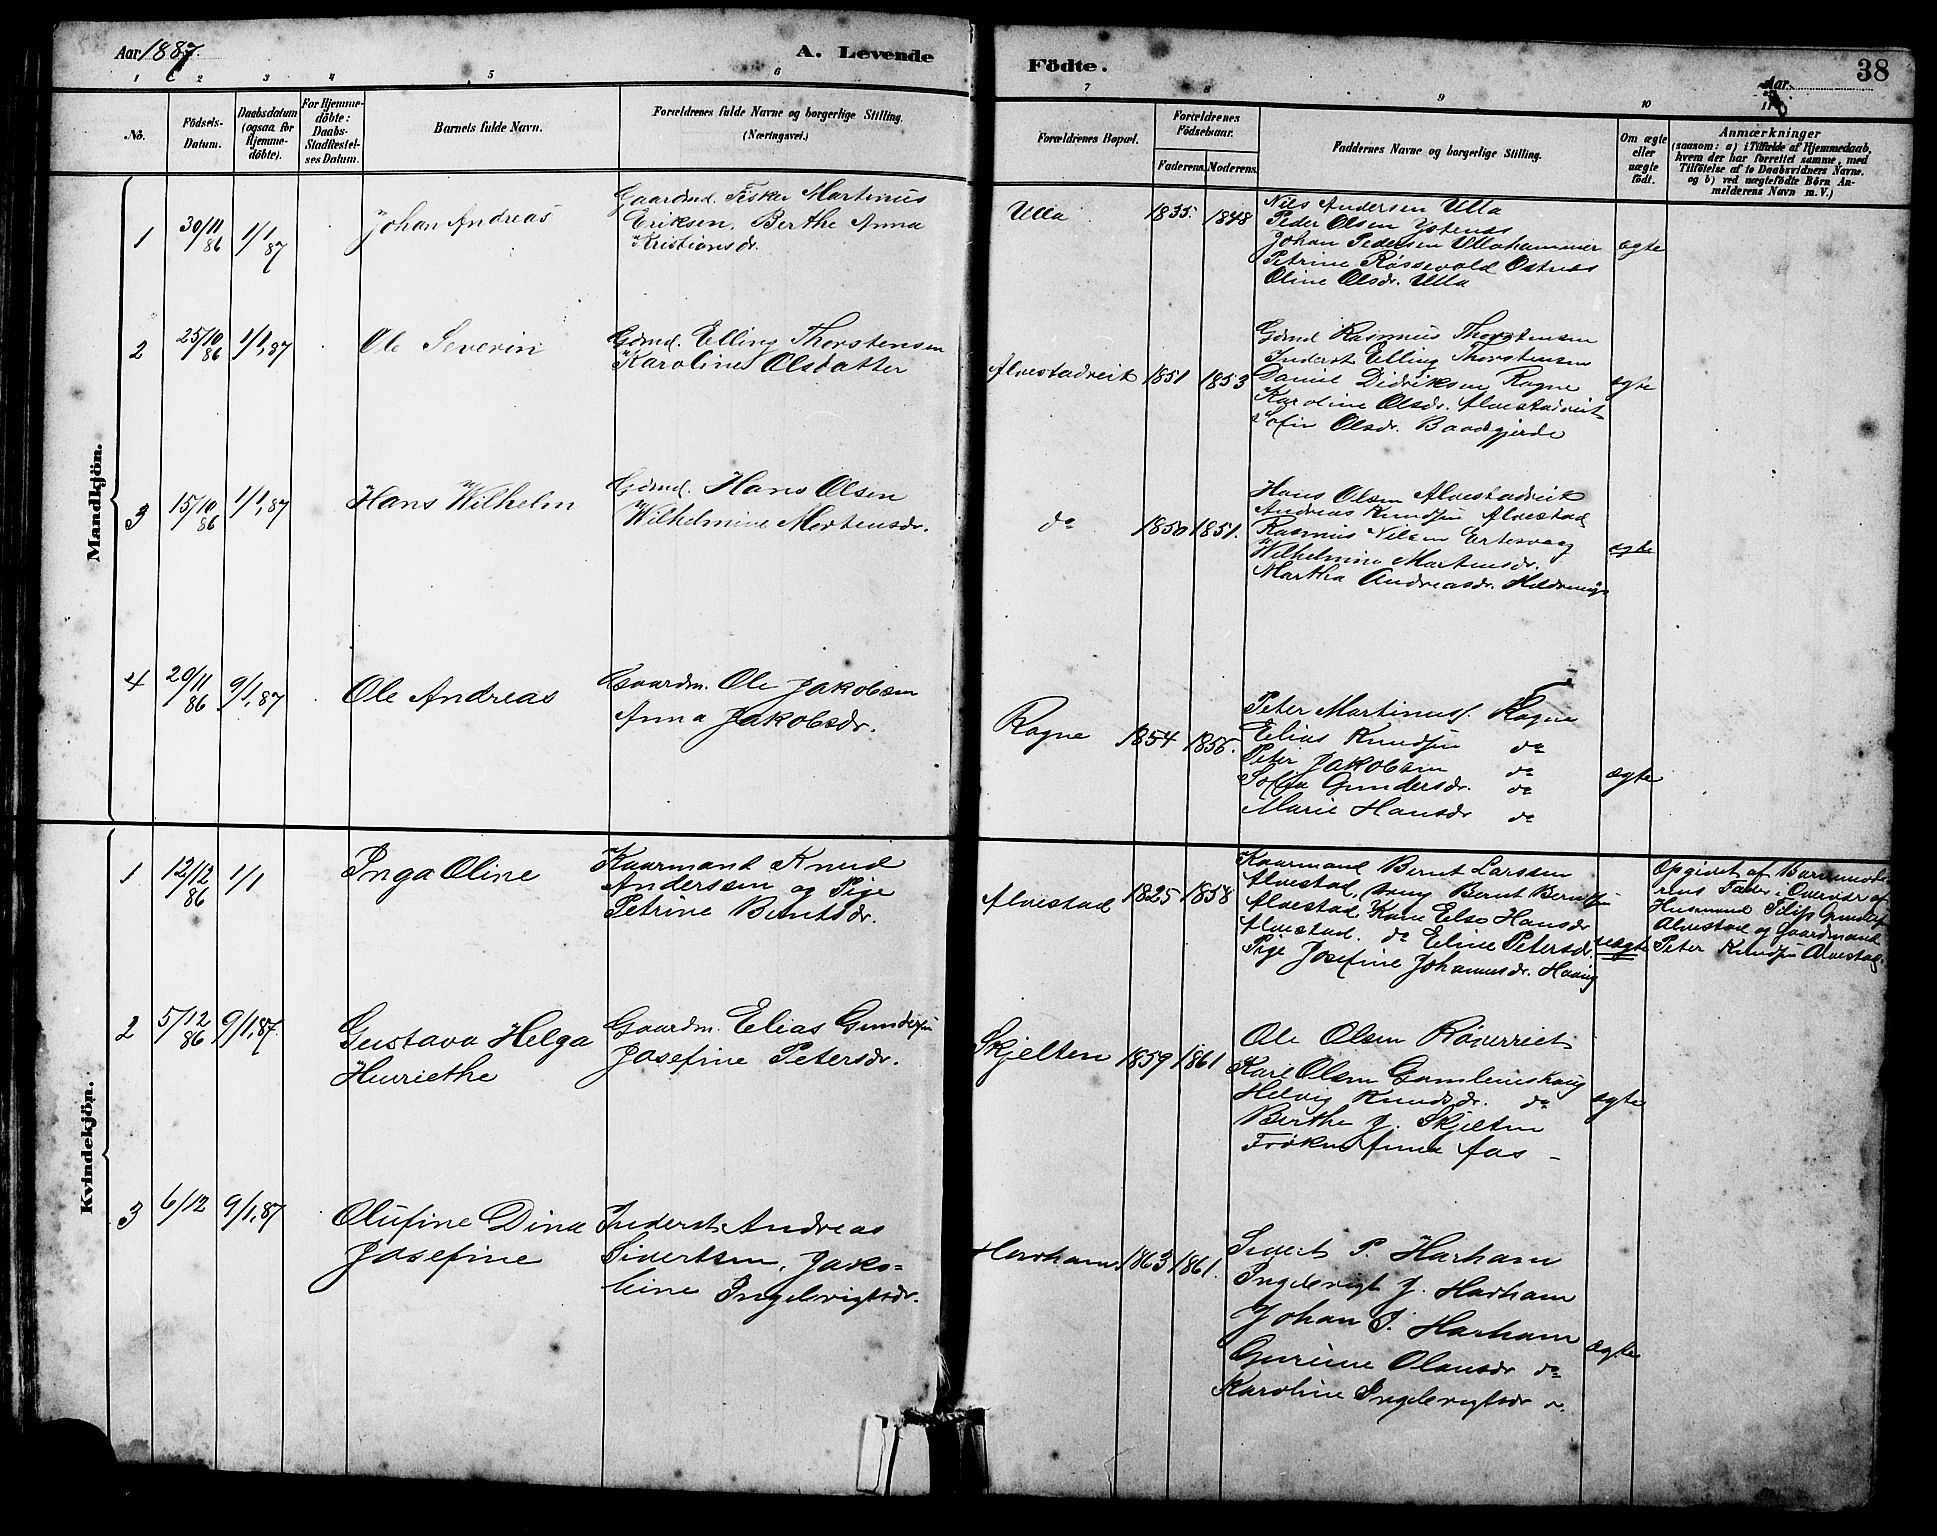 Aar 1887.
A. Levende
Födte.
Aar
38
1 2 3 4 5 6
7 8 9 10 11
No.
Födsels-
Datum.
Daabsdatum
(ogsaa for
Hjemme-
döbte).
For Hjemme-
döbte:
Daabs-
Stadfæstel-
ses Datum.
Barnets fulde Navn.
Forældrenes fulde Navne og borgerlige Stilling.
(Næringsvei.)
Forældrenes Bopæl.
Forældrenes
Födselsaar.
Faderens. Moderens.
Faddernes Navne og borgerlige Stilling.
Om ægte
eller
uægte
födt.
Anmærkninger
(saasom: a) i Tilfælde af Hjemmedaab,
hvem der har forrettet samme, med
Tilföielse af to Daabsvidners Navne.
og b) ved uægtefödte Börn An-
melderens Navn m. V.)
Mandkjön.
1
30/11
86
1/1
87
Johan Andreas
Gaardmd. Fisker Martinus
Eriksen, Berthe Anna
Kristiansdr.
Ulla
1835. 1848
Nils Andersen Ulla
Peder Olsen Ystenæs
Johan Pedersen Ullahammer
Petrine Røssevold Østnæs
Oline Olsdr. Ulla
ægte
2
25/10
86
1/1,87
Ole Severin
Gdmd. Elling Thorstensen
Karoline Olsdatter
Alvestadvik 1851 1853
Gdmd Rasmus Thorstensen
Inderst Elling Thorstensen
Daniel Didriksen Rogne
Karoline Olsdr. Alvestadvik
Sofie Olsdr. Baadsgjerde
ægte
3
15/10
86
1/1,87
Hans Wilhelm
Gdmd. Hans Olsen
Wilhelmine Mortensdr.
do
1850 1851.
Hans Olsen Alvestadvik
Andreas Knudsen Alvestad
Rasmus Nilsen Ertesvaag
Wilhelmine Martensdr.
Martha Andreasdr.
ægte
4
20/11
86
9/1,87
Ole Andreas
Gaardm. Ole Jakobsen
Anna Jakobsdr.
Rogne 1854 1856.
Peter Martinuss. Rogne
Elias Knudsen do
Peter Jakobsen do
Sofia Gundersdr. do
Marie Hansdr do
ægte
Kvindekjön.
1
12/12
86
1/1
Inga Oline
Kaarmand Knud
Anderssen og Pige
Petrine Berntsdr.
Alvestad 1825 1858
Kaarmand Bernt Larssen
Alvestad, Ung Bernt Berntsen
Alvestad, Kone Else Hansdr
Alvestad. do Eline Petersdr.
Pige Josefine Johannesdr. Haavig
uægte
Opgivet af Barnemode-
rens Fader i Overvær af
Husmand Filip Gundersen
Alvestad og Gaardmand
Peter Knudsen Alvestad.
2
5/12
86
9/1,87.
Gustava Helga
Henriethe
Gaardm. Elias Gundersen
Josefine Petersdr.
Skjelten 1859 1861
Ole Olsen
Karl Olsen
Helvig Knudsdr. do
Berthe J. Skjelten
Frøken Anna Aas -
ægte
3
6/12
9/1,87
Olufine Dina
Josefine
Inderst Andreas
Sivertsen, Jako-
bine Ingebrigtsdr.
Harham 1863 1861.
Sivert P. Harham
Ingebrigt J. Harham
Johan J. Harham
Gurine Olausdr do
Karoline Ingebrigtsdr do.
ægte